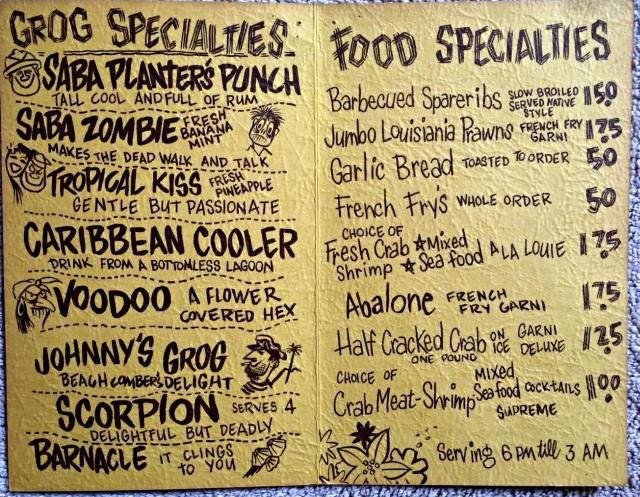 GROG SPECIALTIES:
SABA PLANTER'S PUNCH
TALL COOL AND FULL OF RUM
SABA ZOMBIE FRESH BANANA MINT
MAKES THE DEAD WALK AND TALK
TROPICAL KISS FRESH PINEAPPLE
GENTLE BUT PASSIONATE
CARIBBEAN COOLER
DRINK FROM A BOTTOMLESS LAGOON
VOODOO A FLOWER COVERED HEX
JOHNNY'S GROG
BEACH COMBER'S DELIGHT
SCORPION SERVES 4
DELIGHTFUL BUT DEADLY
BARNACLE IT CLINGS TO YOU
FOOD SPECIALTIES
Barbecued Spareribs SLOW BROILED SERVED NATIVE STYLE 1.50
Jumbo Louisiania Prawns FRENCH FRY GARNI 1.75
Garlic Bread TOASTED TO ORDER 50
French Fry's WHOLE ORDER 50
CHOICE OF
Fresh Crab ★ Mixed
Shrimp ★ Sea food A LA LOUIE 1.75
Abalone FRENCH FRY GARNI 1.75
Half Cracked Crab ON ICE GARNI DELUXE 1.25
ONE POUND
CHOICE OF
Crab Meat-Shrimp Mixed Seafood COCKTAILS SUPREME 1.00
Serving 6 PM till 3 AM